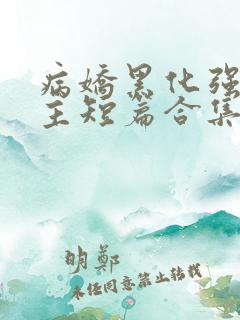 病嬌黑化强
主短篇合集
明鄭
未经同意禁止转载